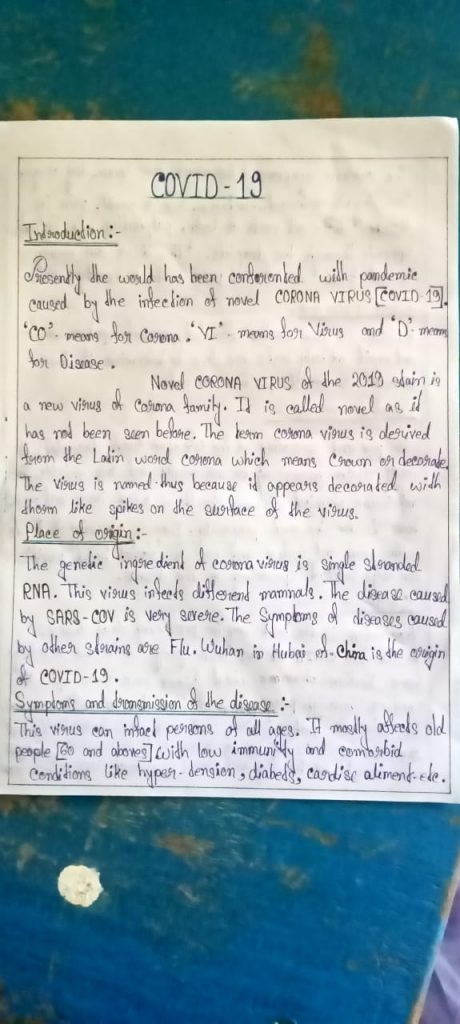 COVID-19
Introduction :-
Presently the world has been conforonted with pandemic
caused by the infection of novel CORONA VIRUS [COVID-19].
'CO'- means for Corona. 'VI'- means for Virus and 'D'- means
for Disease.
Novel CORONA VIRUS of the 2019 stain is
a new virus of Corona family. It is called novel as it
has not been seen before. The term corona virus is derived
from the Latin word corona which means Crown or decorate.
The virus is named thus because it appears decorated with
thorn like spikes on the surface of the virus.
Place of origin :-
The genetic ingredient of corona virus is single stranded
RNA. This virus infects different mammals. The disease caused
by SARS-COV is very severe. The Symptoms of diseases caused
by other strains are Flu. Wuhan in Hubai of China is the origin
of COVID-19.
Symptoms and transmission of the disease :-
This virus can infact persons of all ages. It mostly affects old
people [60 and aboves] with low immunity and comorbid
conditions like hyper-tension, diabets, cardise aliment etc.